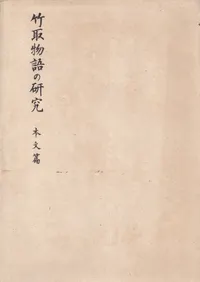 竹取物語の研究
本文篇